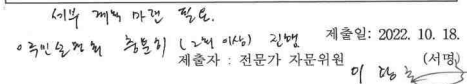 세부 계획 마련 필요.
○주민설명회 충분히 (2회 이상) 진행
제출일: 2022. 10. 18.
제출자 : 전문가 자문위원 (서명)